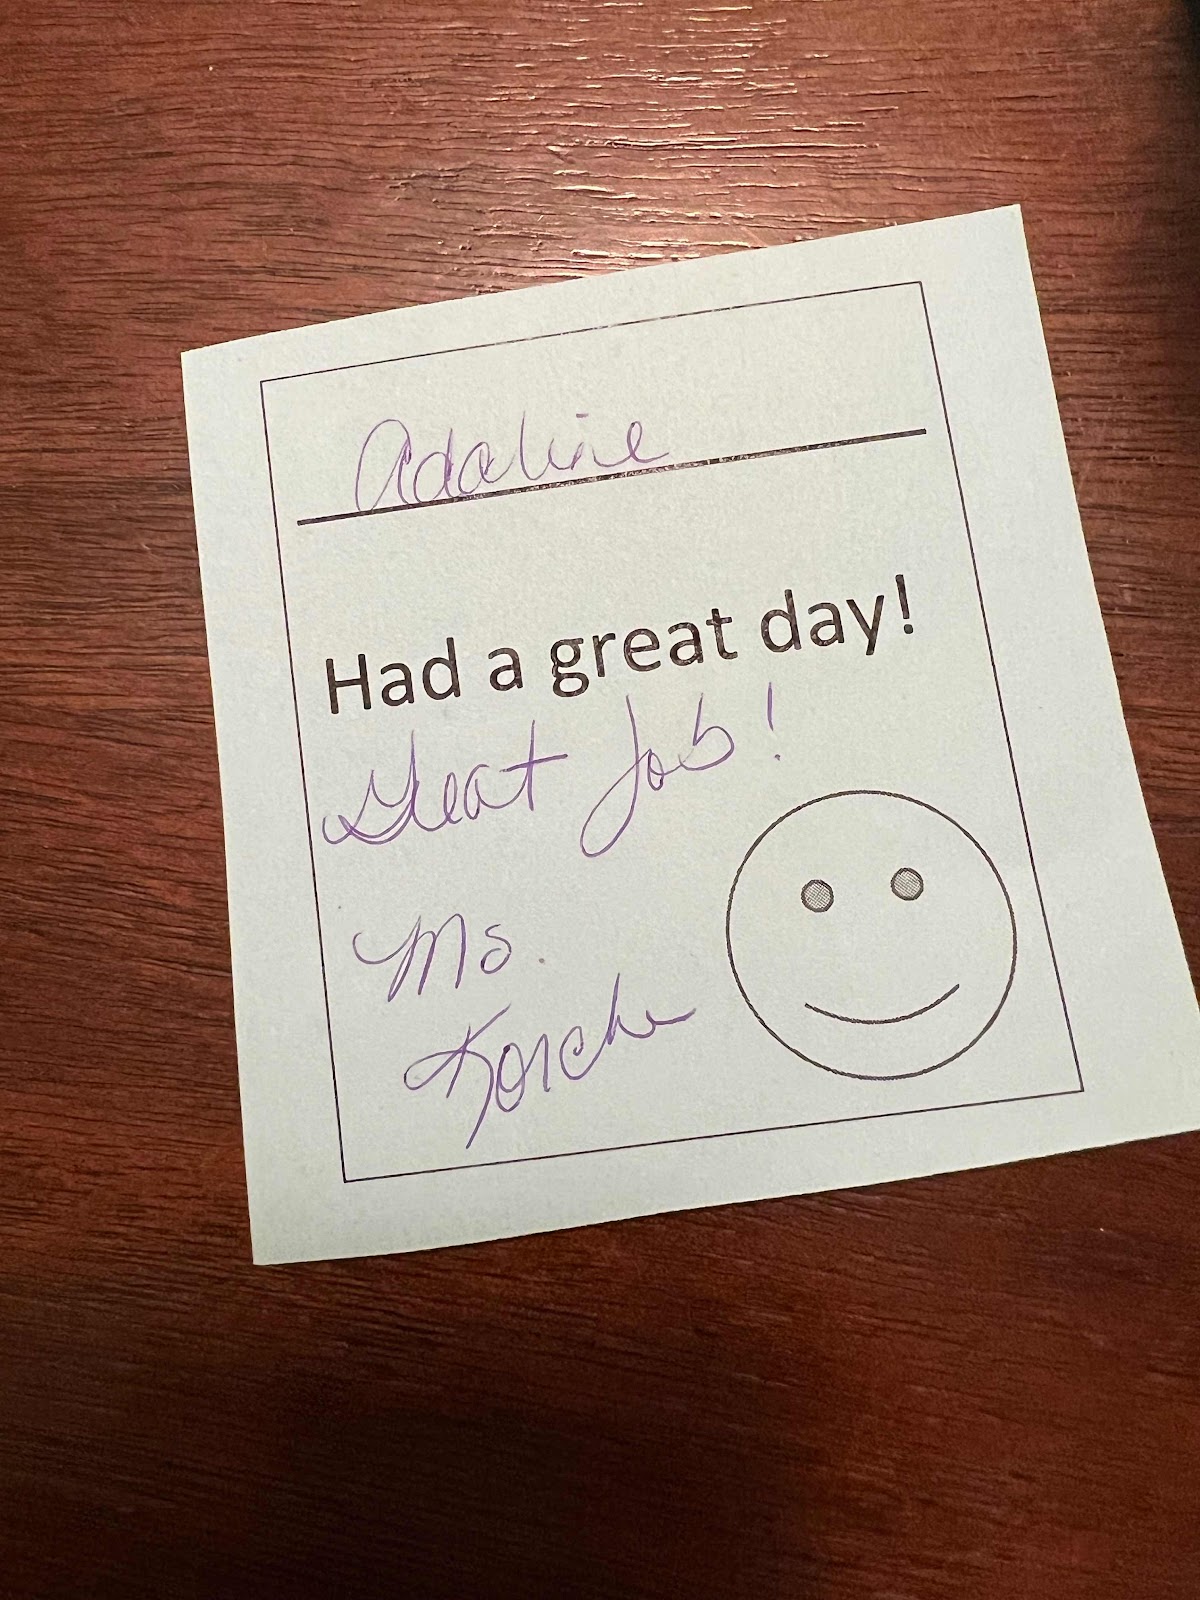 Adaline
Had a great day!
Great Job!
Ms.